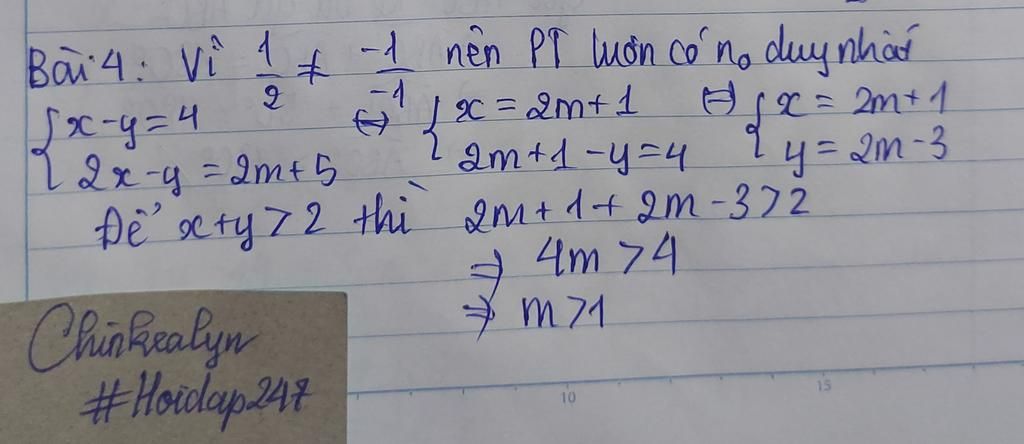 Bài 4: Vì 1/2 ≠ -1/-1 nên PT luôn có n₀ duy nhất
{x-y=4 ⇔ {x=2m+1 ⇔ {x=2m+1
{2x-y=2m+5 {2m+1-y=4 {y=2m-3
Để x+y>2 thì 2m+1+2m-3>2
⇒ 4m>4
⇒ m>1
Chinkealyn
#Hoidap247
10 15